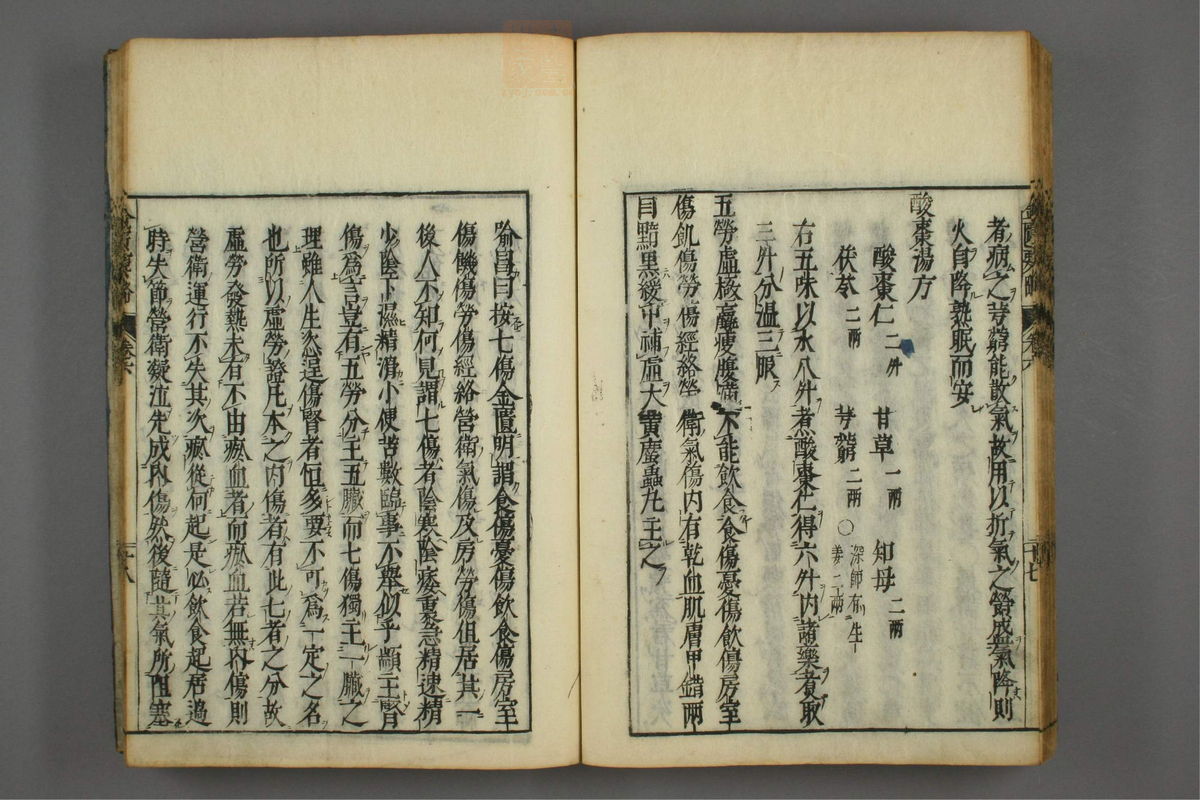 者病之芎藭能散氣故用以折氣之鬱盛氣降則
火自降熱眠而安
酸棗湯方
酸棗仁二升 甘草一兩 知母二兩
茯苓二兩 芎藭二兩○深師有生
姜二兩
右五味以水八升煮酸棗仁得六升內諸藥煮取
三升分溫三服
五勞虛極羸瘦腹滿不能飲食食傷憂傷飲傷房室
傷飢傷勞傷經絡榮衛氣傷內有乾血肌膚甲錯兩
目黯黑緩中補虛大黃䗪蟲丸主之
喻昌曰按七傷金匱明謂食傷憂傷飲食傷房室
傷饑傷勞傷經絡營衛氣傷及房勞傷但居其一
後人不知何見謂七傷者陰寒陰痿裏急精速精
少陰下濕精滑小便苦數臨事不舉似乎顓主腎
傷爲言豈有五勞分主五臟而七傷獨主一臟之
理雖人生恣逞傷腎者恒多要不可爲一定之名
也所以虛勞證凡本之內傷者有此七者之分故
虛勞發熱未有不由瘀血者而瘀血若無內傷則
營衛運行不失其次瘀從何起是必飲食起居過
時失節營衛凝泣先成內傷然後隨其氣所阻塞